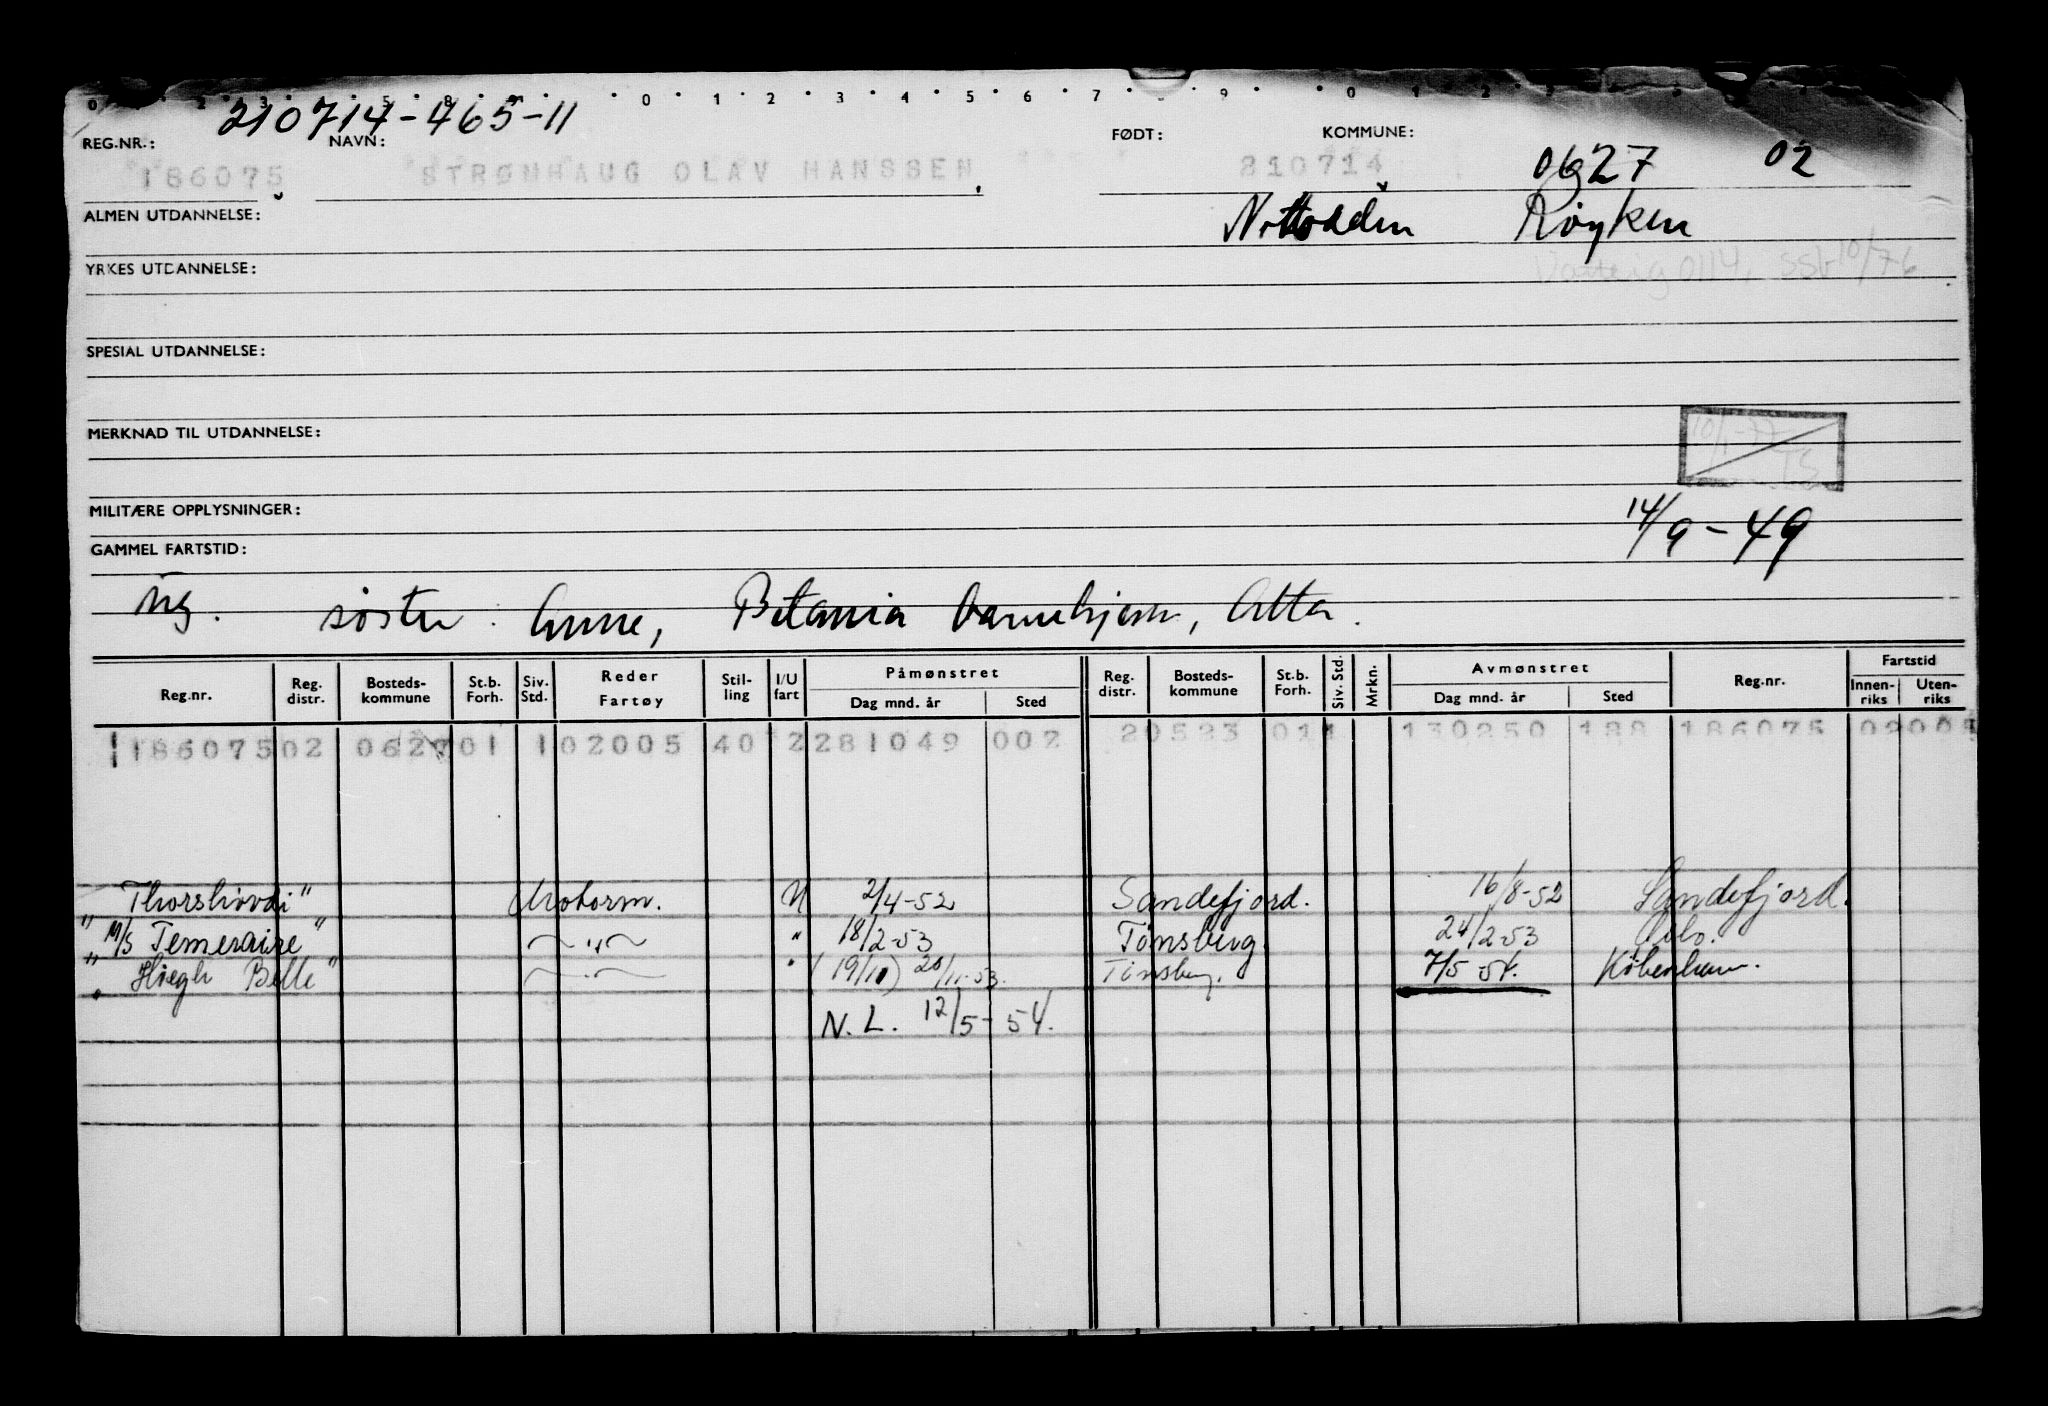 210714-465-11
REG.NR.: NAVN: FØDT: KOMMUNE:
186075 STRØMHAUG OLAV HANSSEN 210714 0627 02
ALMEN UTDANNELSE: Nottodden Røyken
YRKES UTDANNELSE: 0114, SSB 10/76
SPESIAL UTDANNELSE:
10/1-77
MERKNAD TIL UTDANNELSE:
TS
MILITÆRE OPPLYSNINGER: 14/9-49
GAMMEL FARTSTID:
Ug. søster: Anne, Betania barnehjem, Alta.
Reg.nr. Reg. distr. Bosteds-kommune St.b. Forh. Siv. Std. Reder Fartøy Stil-ling I/U fart Påmønstret Dag mnd. år Sted Reg. distr. Bosteds-kommune St.b. Forh. Siv. Std. Mrkn. Avmønstret Dag mnd. år Sted Reg.nr. Fartstid Innen-riks Uten-riks
186075 02 0627 01 1 02005 40 2 281049 002 20523 011 130250 188 186075 09005
"Thorshövdi" Motorm. U 2/4-52 Sandefjord. 16/8-52 Sandefjord.
"M/S Temeraire" " " 18/2-53 Tønsberg. 24/2-53 Oslo.
"Höegh Belle" " (19/10) 20/11-53. Tønsberg. 7/5 54. København.
N.L. 12/5-54.